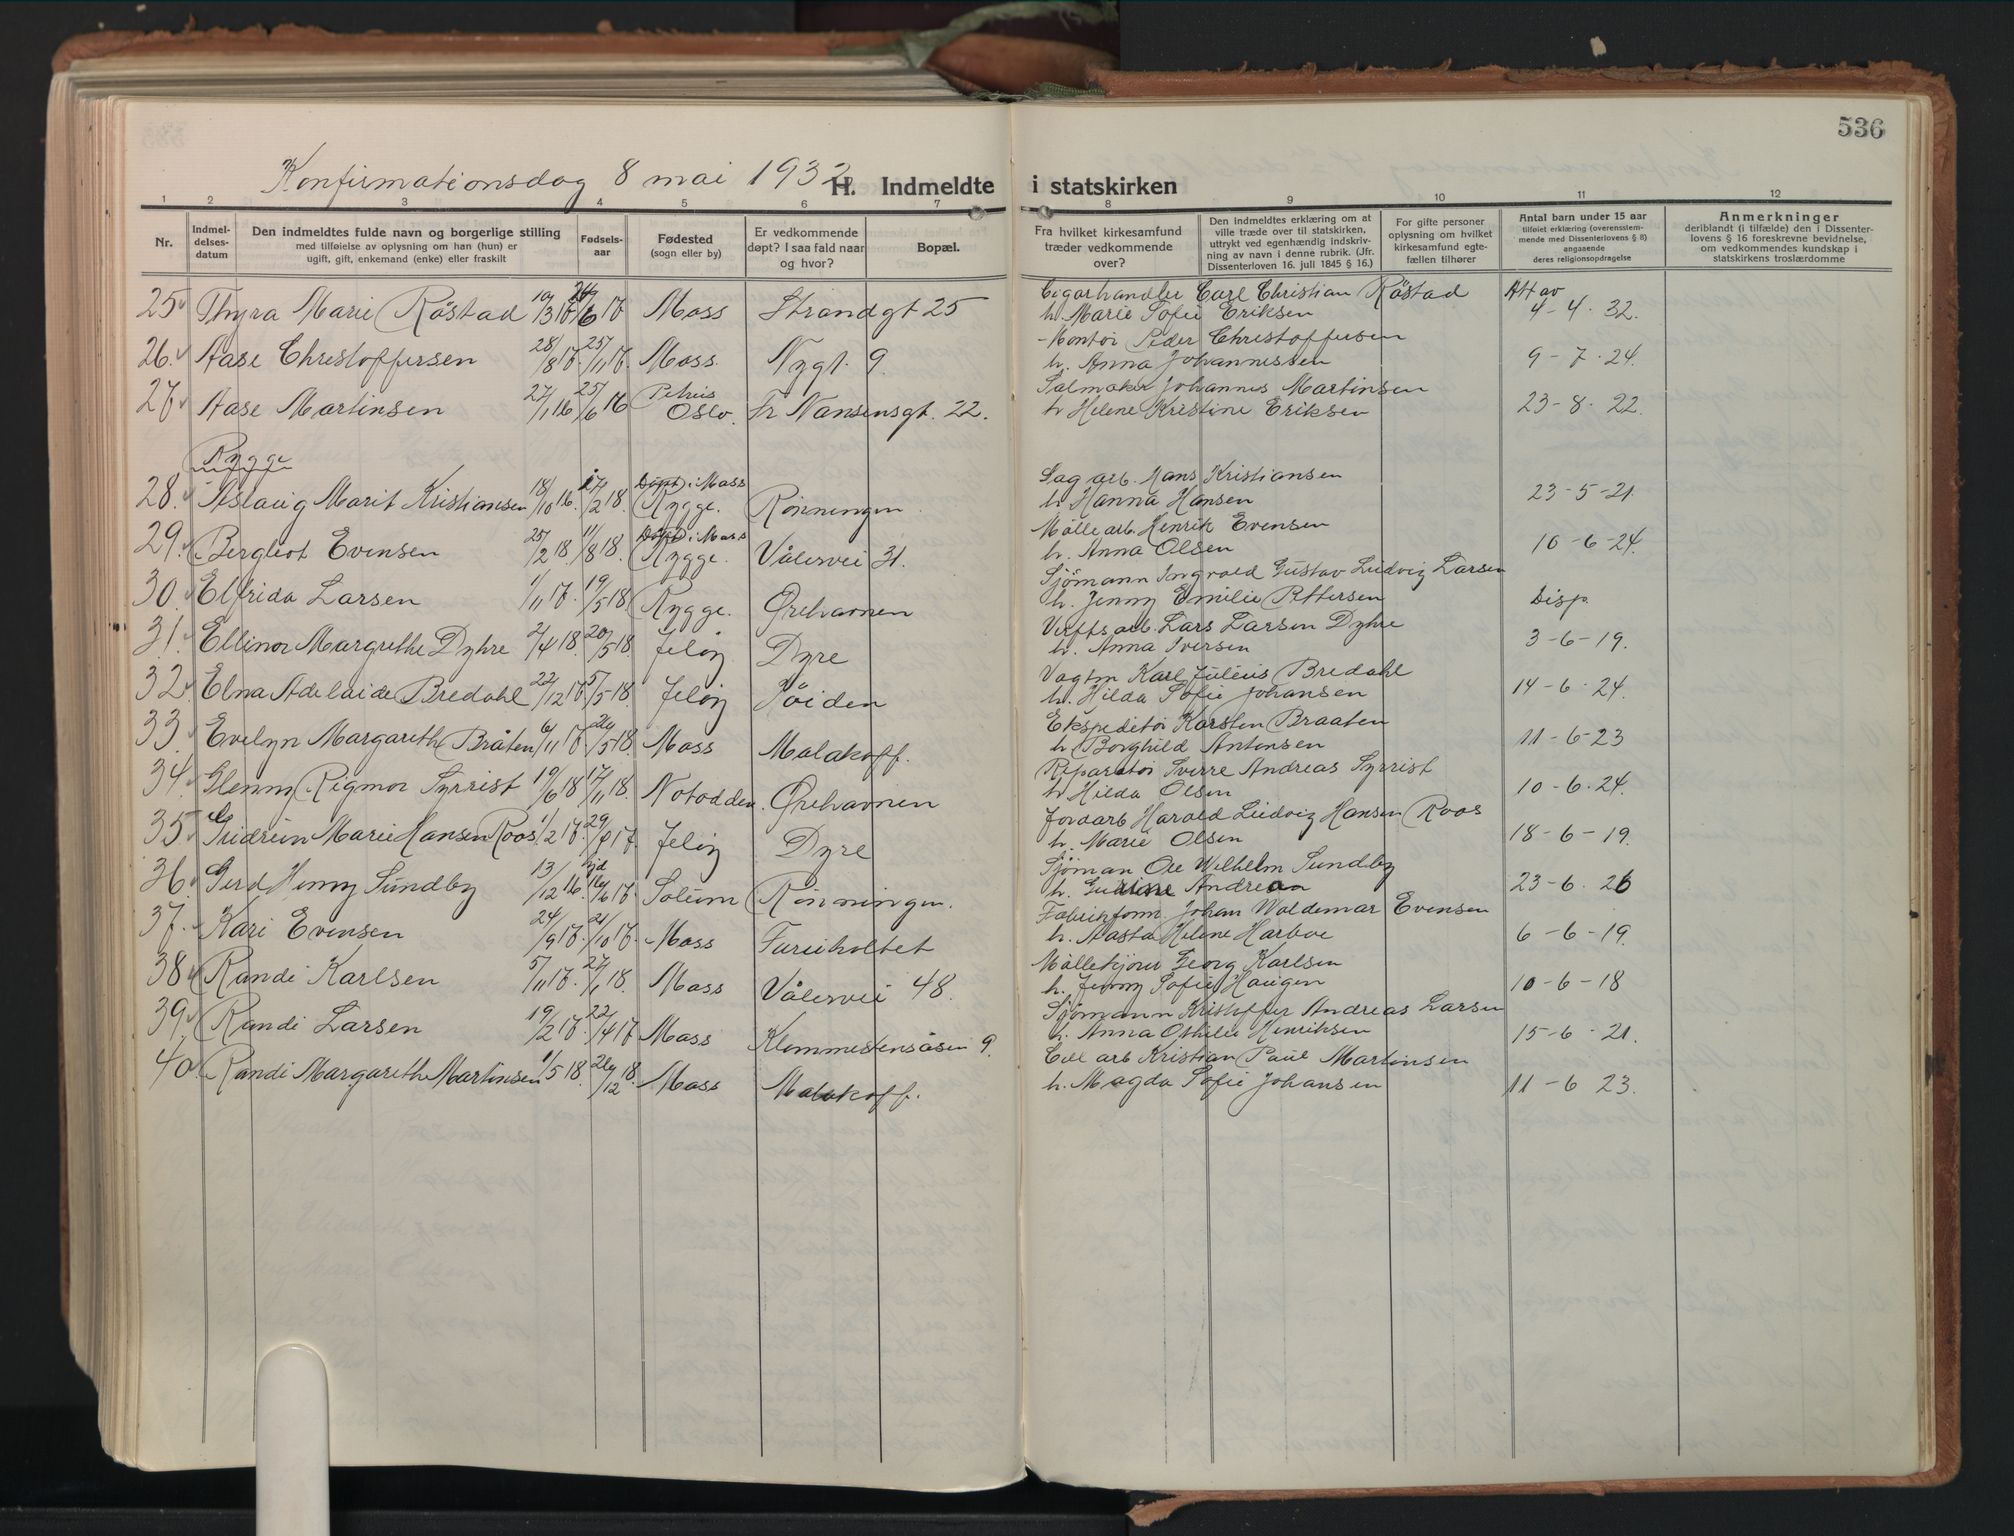 536
Konfirmationsdag 8 mai 1932
H. Indmeldte i statskirken
1 2 3 4 5 6 7 8 9 10 11 12
Nr.
Indmel-
delses-
datum
Den indmeldtes fulde navn og borgerlige stilling
med tilføielse av oplysning om han (hun) er
ugift, gift, enkemand (enke) eller fraskilt
Fødsels-
aar
Fødested
(sogn eller by)
Er vedkommende
døpt? I saa fald naar
og hvor?
Bopæl.
Fra hvilket kirkesamfund
træder vedkommende
over?
Den indmeldtes erklæring om at
ville træde over til statskirken,
uttrykt ved egenhændig indskriv-
ning av navn i denne rubrik. (Jfr.
Dissenterloven 16. juli 1845 § 16.)
For gifte personer
oplysning om hvilket
kirkesamfund egte-
fællen tilhører
Antal barn under 15 aar
tilføiet erklæring (overensstem-
mende med Dissenterlovens § 8)
angaaende
deres religionsopdragelse
Anmerkninger
deriblandt (i tilfælde) den i Dissenter-
lovens § 16 foreskrevne bevidnelse,
om vedkommendes kundskap i
statskirkens troslærdomme
25 Thyra Marie Röstad 19/3 17 24/6 17 Moss Strandgt 25 Cigarhandler Carl Christian Röstad Att av
h. Marie Sofie Eriksen 4-4-32.
26. Aase Christoffersen 28/8 17. 25/11 17. Moss. Nygt. 9. Montör Peder Christoffersen
h. Anna Johannessen 9-7-24.
27 Aase Martinsen 27/1 16 25/6 16 Petrus Oslo. Fr Nansensgt. 22. Salmaker Johannes Martinsen
h Helene Kristine Eriksen 23-8-22.
Rygge
28. Aslaug Marit Kristiansen 18/10 16. 17/2 18. Döpt i Moss Rygge. Rönningen Sag arb. Hans Kristiansen
h Hanna Hansen 23-5-21.
29. Bergliot Evensen 25/2 18 11/8 18. Döpt i Moss Rygge. Vålervei 31. Mölle arb. Henrik Evensen
h. Anna Olsen 10-6-24.
30. Elfrida Larsen 1/11 17. 19/5 18. Rygge. Örehavnen Sjömann Ingvald Gustav Ludvig Larsen
h. Jenny Emilie Pettersen Disp.
31. Ellinor Margrethe Dyhre 2/4 18. 20/5 18. Jelöy Dyre Verfts arb. Lars Larsen Dyhre
h. Anna Iversen 3-6-19.
32. Elna Adelaide Bredahl 22/12 17. 5/5 18. Jelöy Röiden Vagtm Karl Julius Bredahl
h. Hilda Sofie Johansen 14-6-24.
33. Evelyn Margareth Bråten 6/11 17. 26/5 18. Moss Malakoff. Ekspeditör Karsten Braaten
h. Borghild Antonsen 11-6-23
34. Glenny Rigmor Syrrist 19/6 18 17/11 18. Notodden. Örehavnen Reparatör Sverre Andreas Syrrist
h Hilda Olsen 10-6-24.
35 Gudrun Marie Hansen Roos. 1/2 17. 29/ 17. Jelöy Dyre Jordarb Harald Ludvig Hansen Roos
h. Marie Olsen 18-6-19.
36. Gerd Henny Sundby 13/12 16. hjd 16/6 17 Solum Rönningen. Sjöman Ole Wilhelm Sundby
h. Andrea 23-6-26
37. Kari Evensen 24/9 17. 21/10 17. Moss Furuholtet Fabrikform. Johan Waldemar Evensen
h. Aasta Helene Harboe 6-6-19.
38 Randi Karlsen 5/11 17. 27/1 18. Moss Vålervei 48. Möllekjörer Georg Karlsen
h. Jenny Sofie Haugen 10-6-18
39. Randi Larsen 19/2 17. 22/4 17 Moss Klommestensåsen 9. Sjömann Kristoffer Andreas Larsen
h. Anna Othilie Henriksen 15-6-21.
40. Randi Margareth Martinsen 1/5 18. 26/12 18. Moss Malakoff. Cell arb Kristian Paul Martinsen
h. Magda Sofie Johansen 11-6 23.